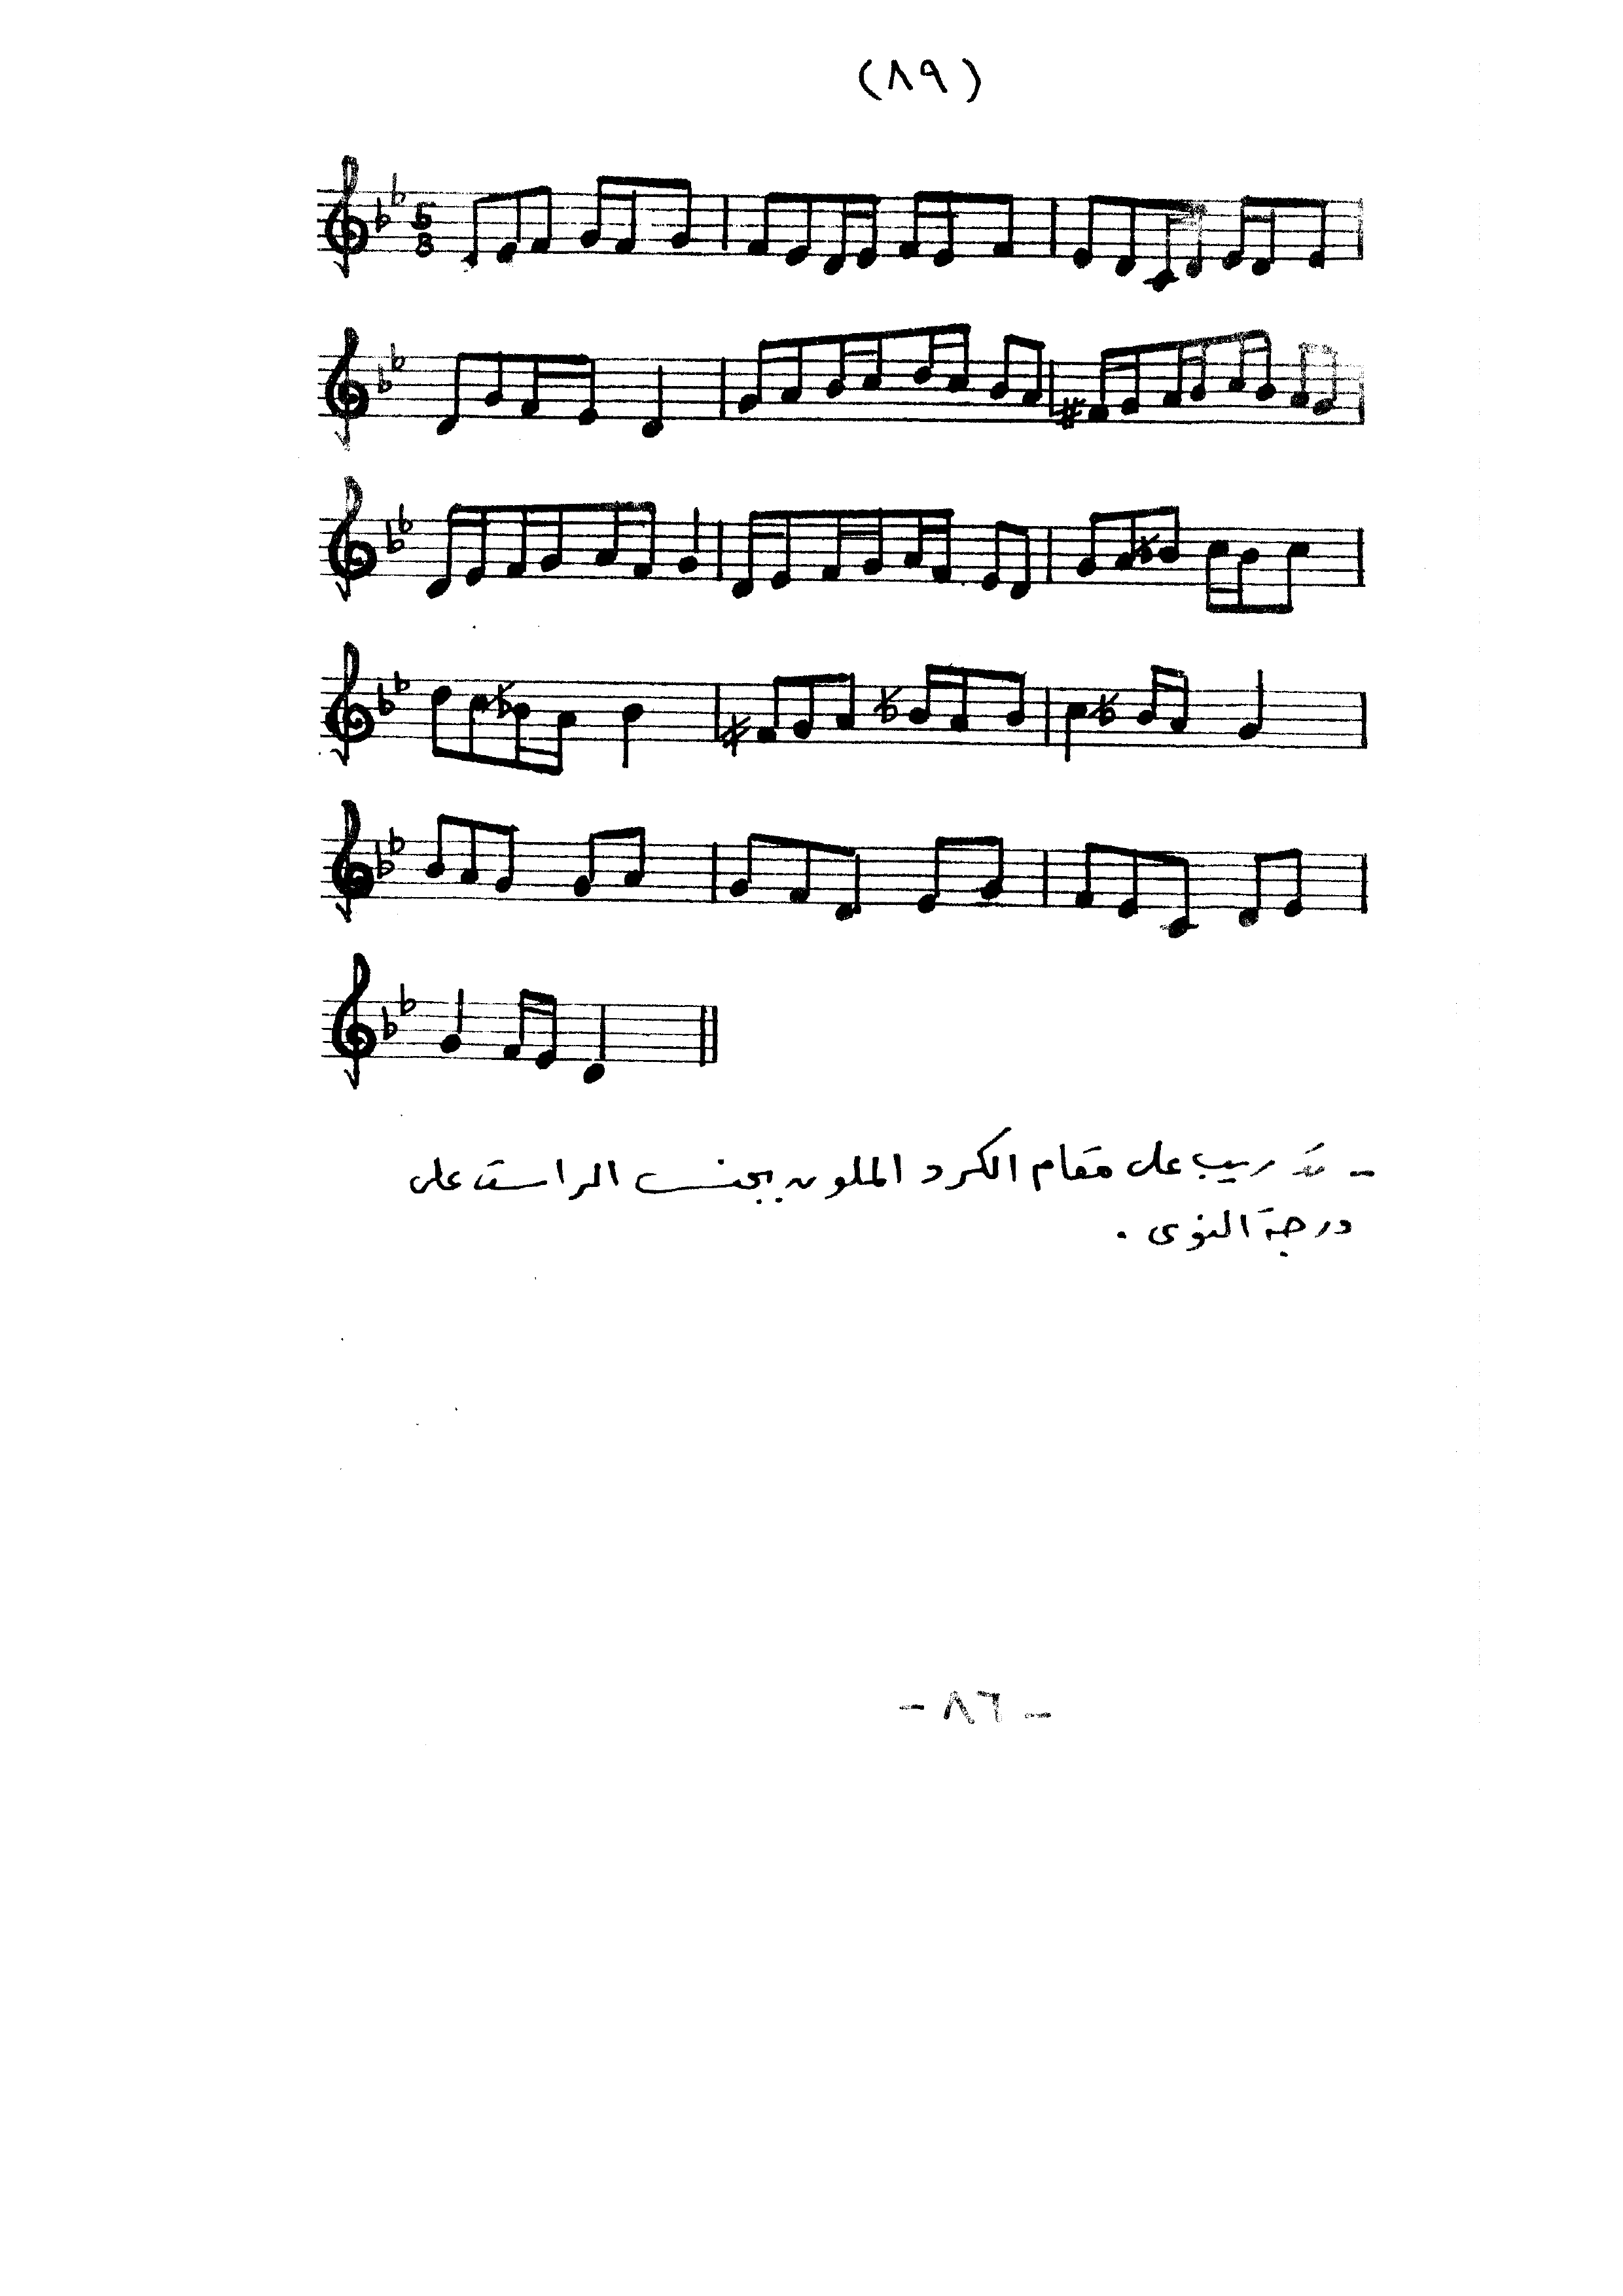 (٨٩)
5
8
- تدريب على مقام الكرد الملون بجنس الراست على
درجة النوى .
- ٨٦ -